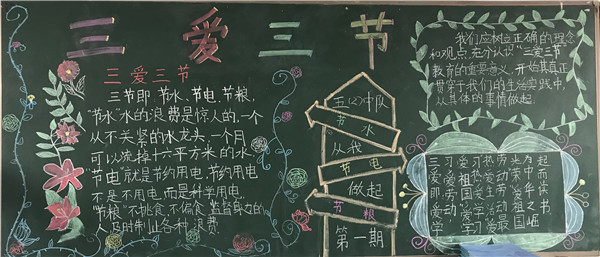 三爱三节
三爱三节
三节即节水、节电、节粮,
"节水"水的浪费是惊人的。一个
从不关紧的水龙头,一个月
可以流掉十六平方米的水
"节电"就是节约用电,节约用电
不是不用电,而是科学用电。
"节粮"不挑食、不偏食监督身边的
人及时制止各种浪费
五(2)中队
节水
从我
节电
做起
节粮
第一期
我们应树立正确的理念
和观点,充分认识"三爱三节
教育的重要意义,开始其真正
贯穿于我们的生活实践中,
从具体的事情做起。
三爱即爱学
习爱劳动
爱祖国
光荣爱祖国
为中华之崛
起而读书